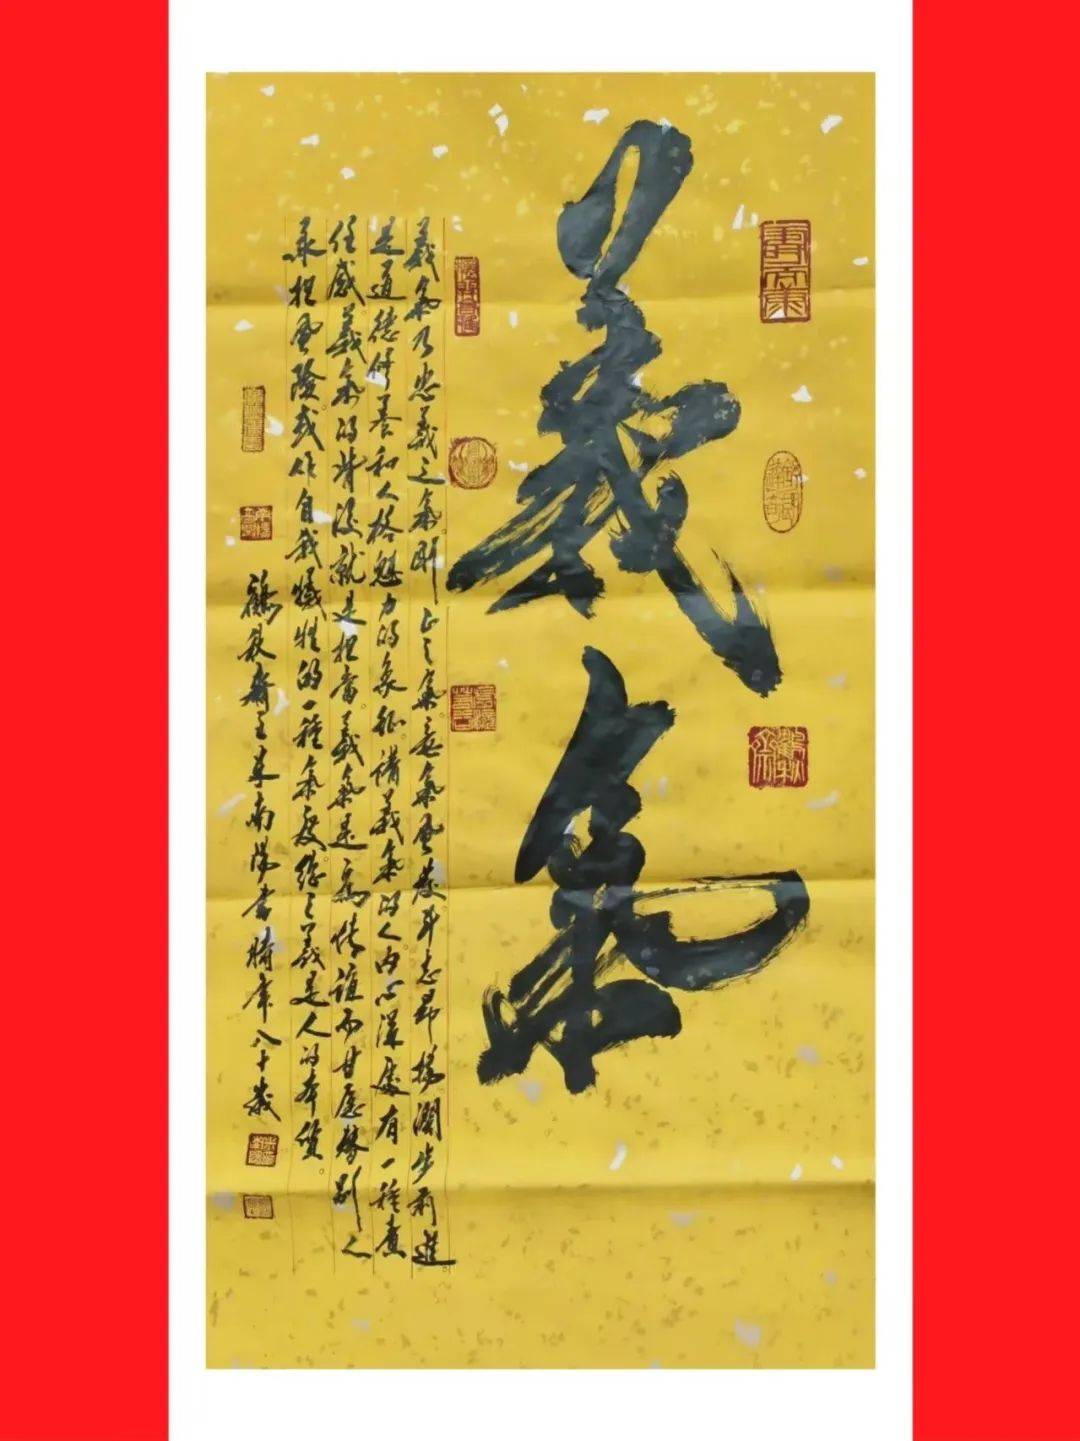 義氣
義氣乃忠義之氣。剛正之氣。意氣風發斗志昂揚濶步前進。
是道德修养和人格魅力的象征。講義氣的人内心深處有一種责
任感。義氣的背後就是担當。義氣是為情誼而甘愿替別人
承担風險或作自我犧牲的一種氣度。總之義是人的本質。
鶴秋齋主 南陽書 時年八十歲
鶴秋